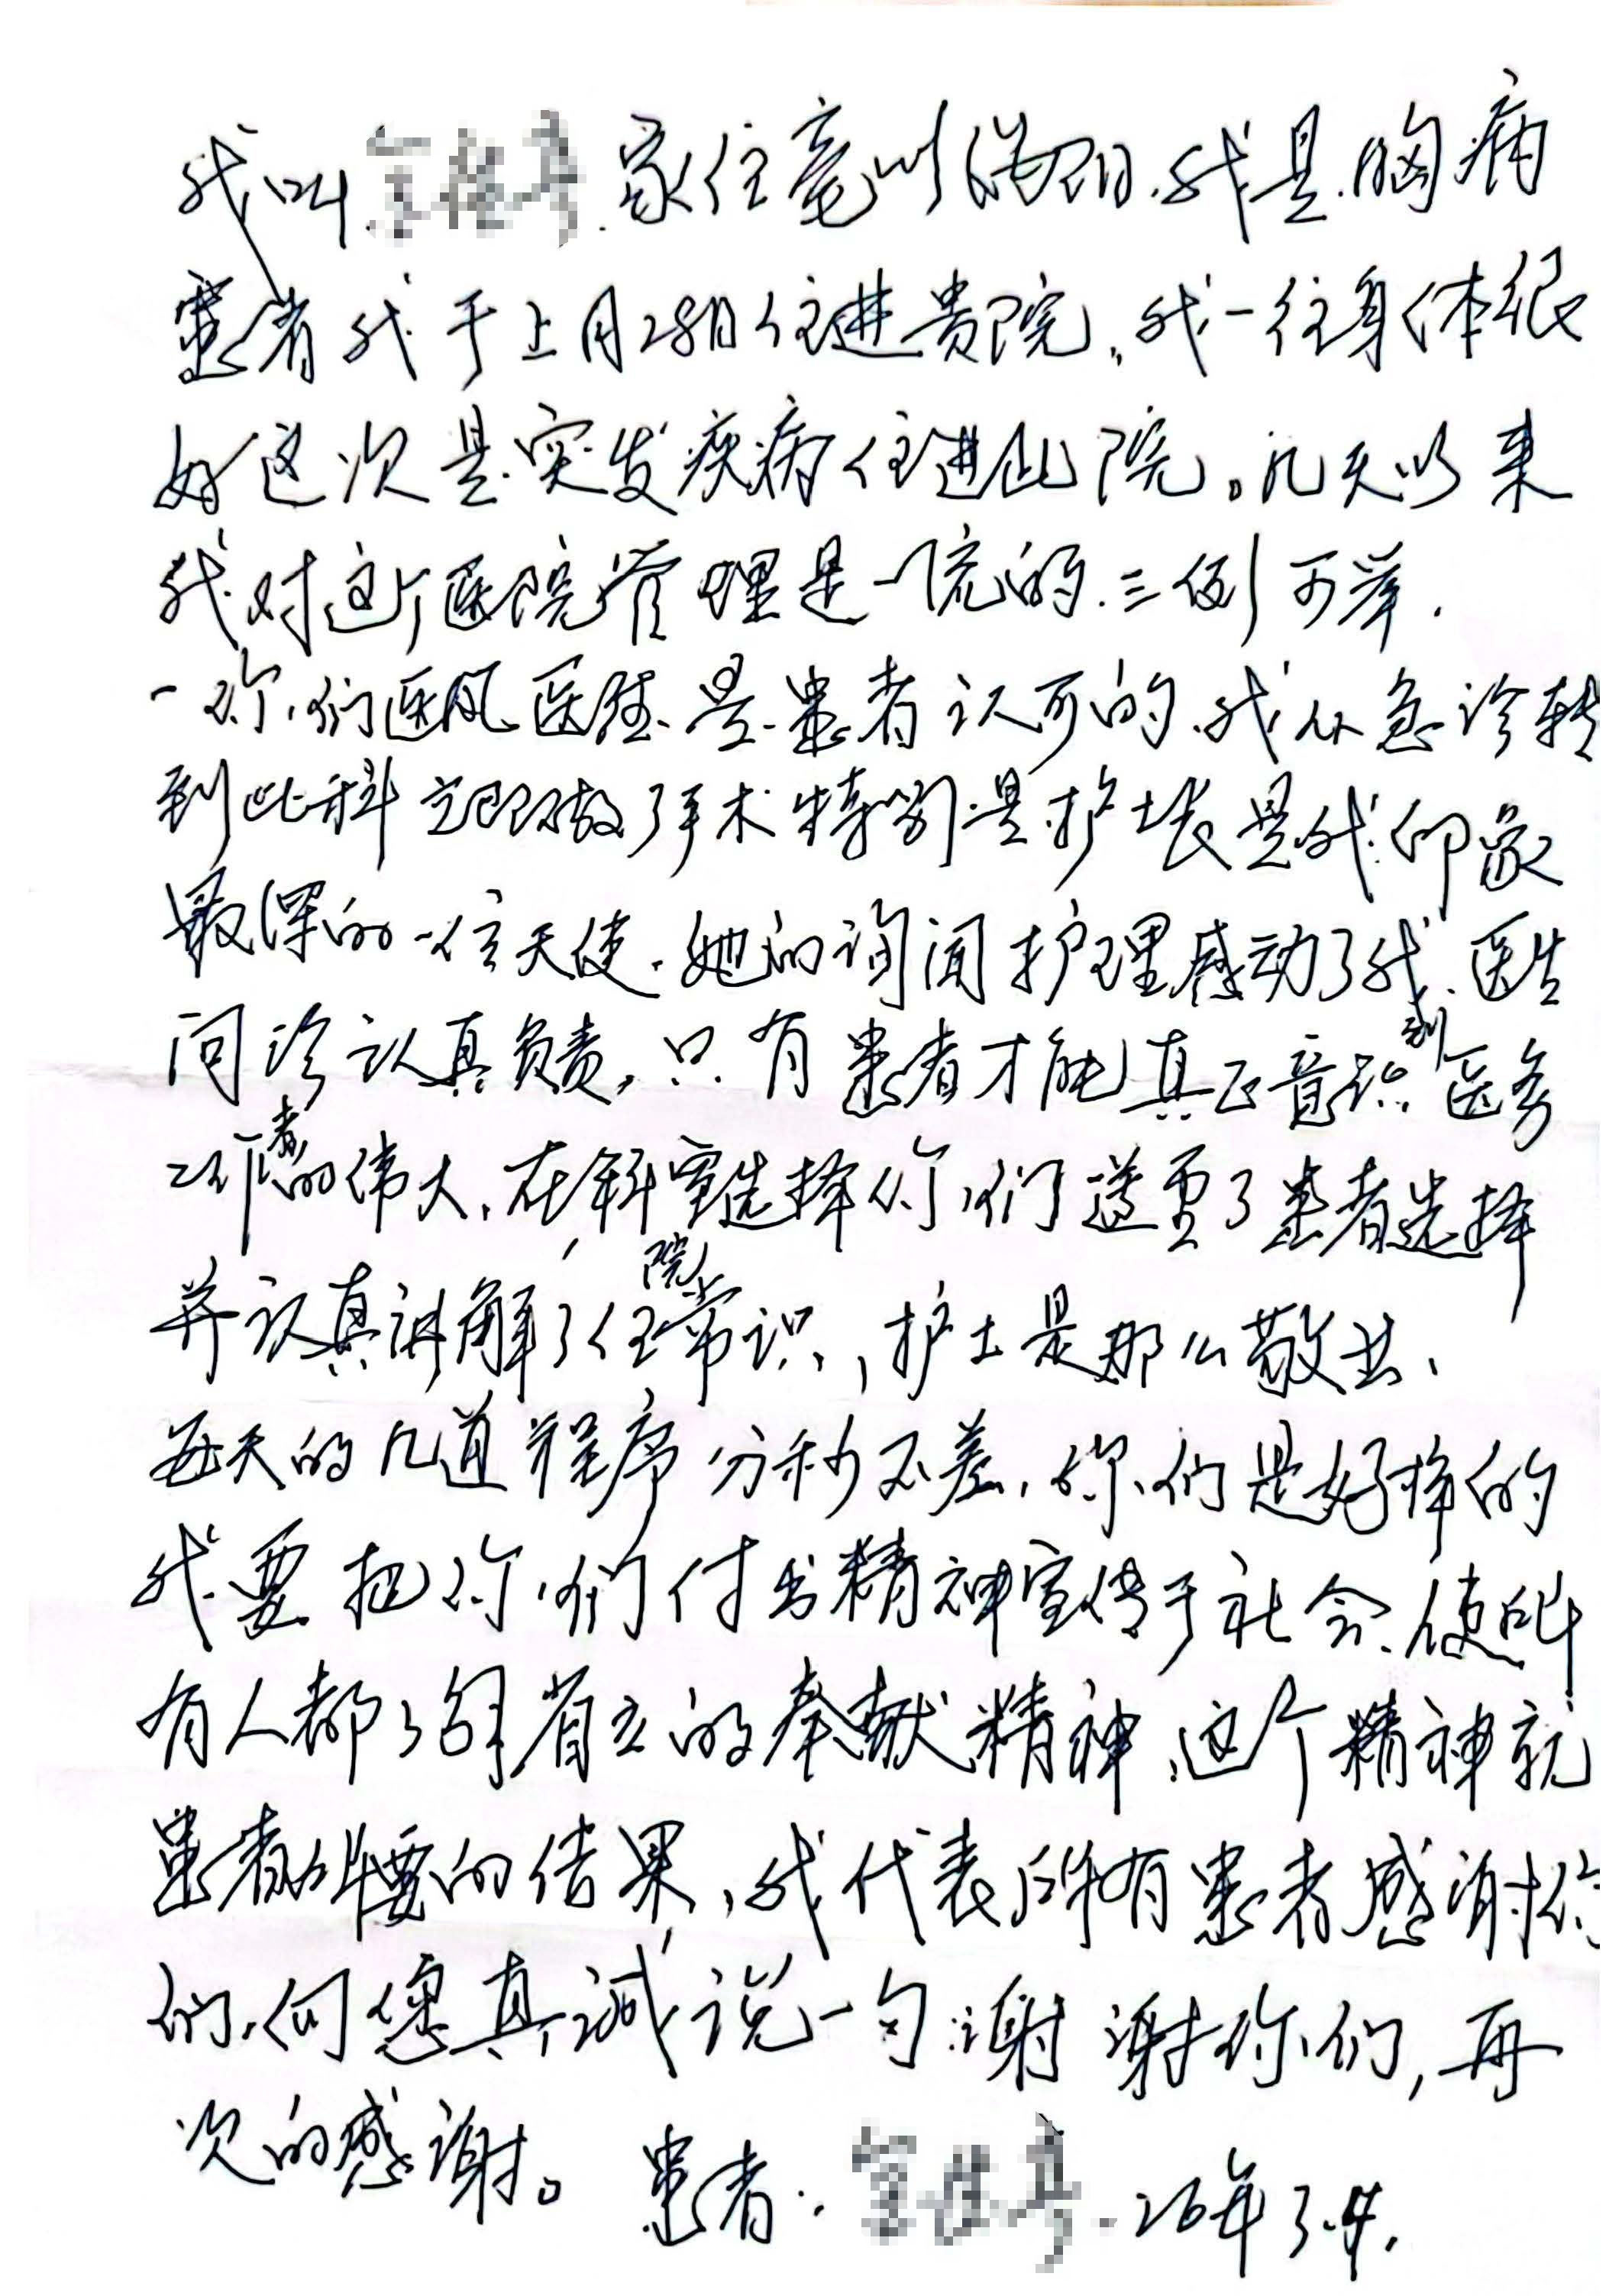 我叫 家住亳州涡阳.我是.胸病
患者我于上月28日住进贵院。我一往身体很
好这次是.突发疾病住进此院。几天以来
我对这个医院管理是一流的.三例可举.
一你们医风医德.是患者认可的.我从急诊转
到此科立即做了手术特别是护士长是我印象
最深的一位天使.她的询闻护理感动了我.医生
问诊认真负责,只有患者才能真正意识到医务
工作者的伟大.在科室选择你们遵重了患者选择
并认真讲解了住院常识,护士是那么敬业、
每天的几道程序分秒不差.你们是好样的
我要把你们付出精神宣传于社会.使所
有人都了解 的奉献精神.这个精神就
患者 要的结果,我代表所有患者感谢你
们.向您真诚说一句:谢谢你们,再
次的感谢。 患者: .26年3.4.